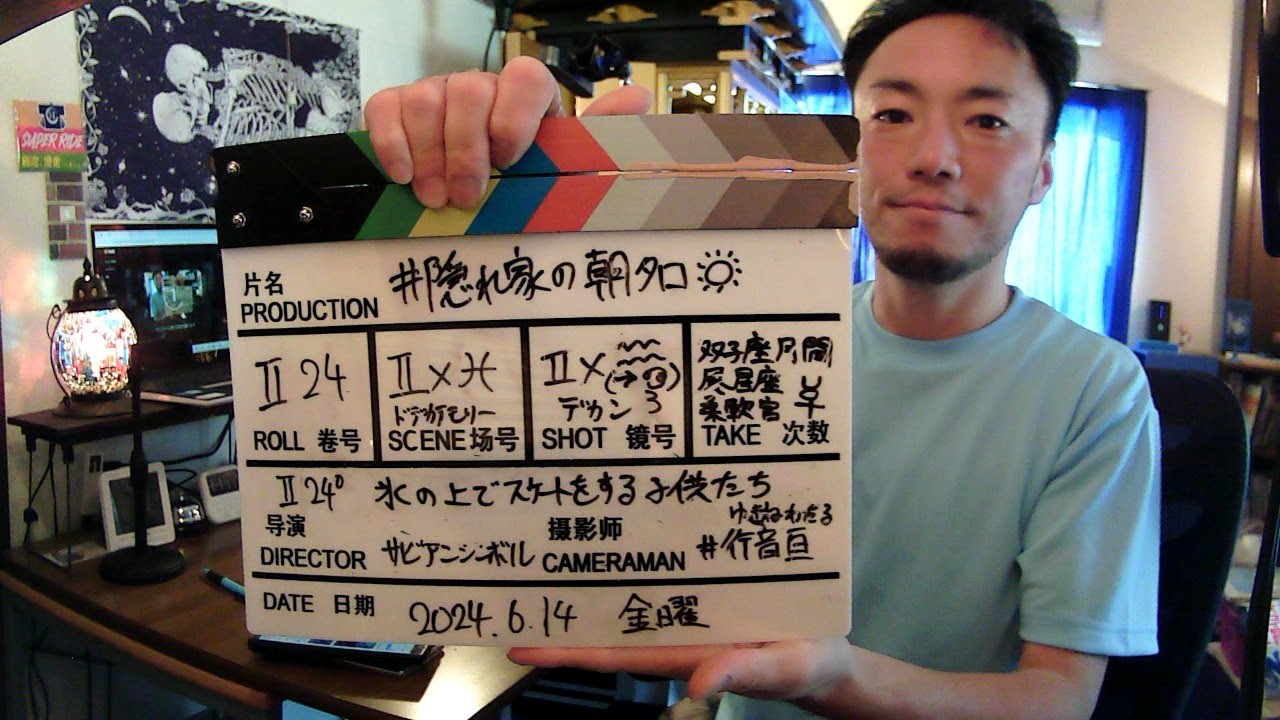 SUPER RIDE
片名
PRODUCTION
#隠れ家の朝タロ☀
Ⅱ 24
ROLL 卷号
Ⅱ×♓
ドデカテモリー
SCENE 场号
Ⅱ×♒
(→③)
デカン 3
SHOT 镜号
双子座月間
尻尾座
柔軟宮
TAKE 次数
Ⅱ24° 氷の上でスケートをする子供たち
导演
DIRECTOR サビアンシンボル
摄影师
CAMERAMAN
ゆきねわたる
#行音亘
DATE 日期
2024.6.14 金曜